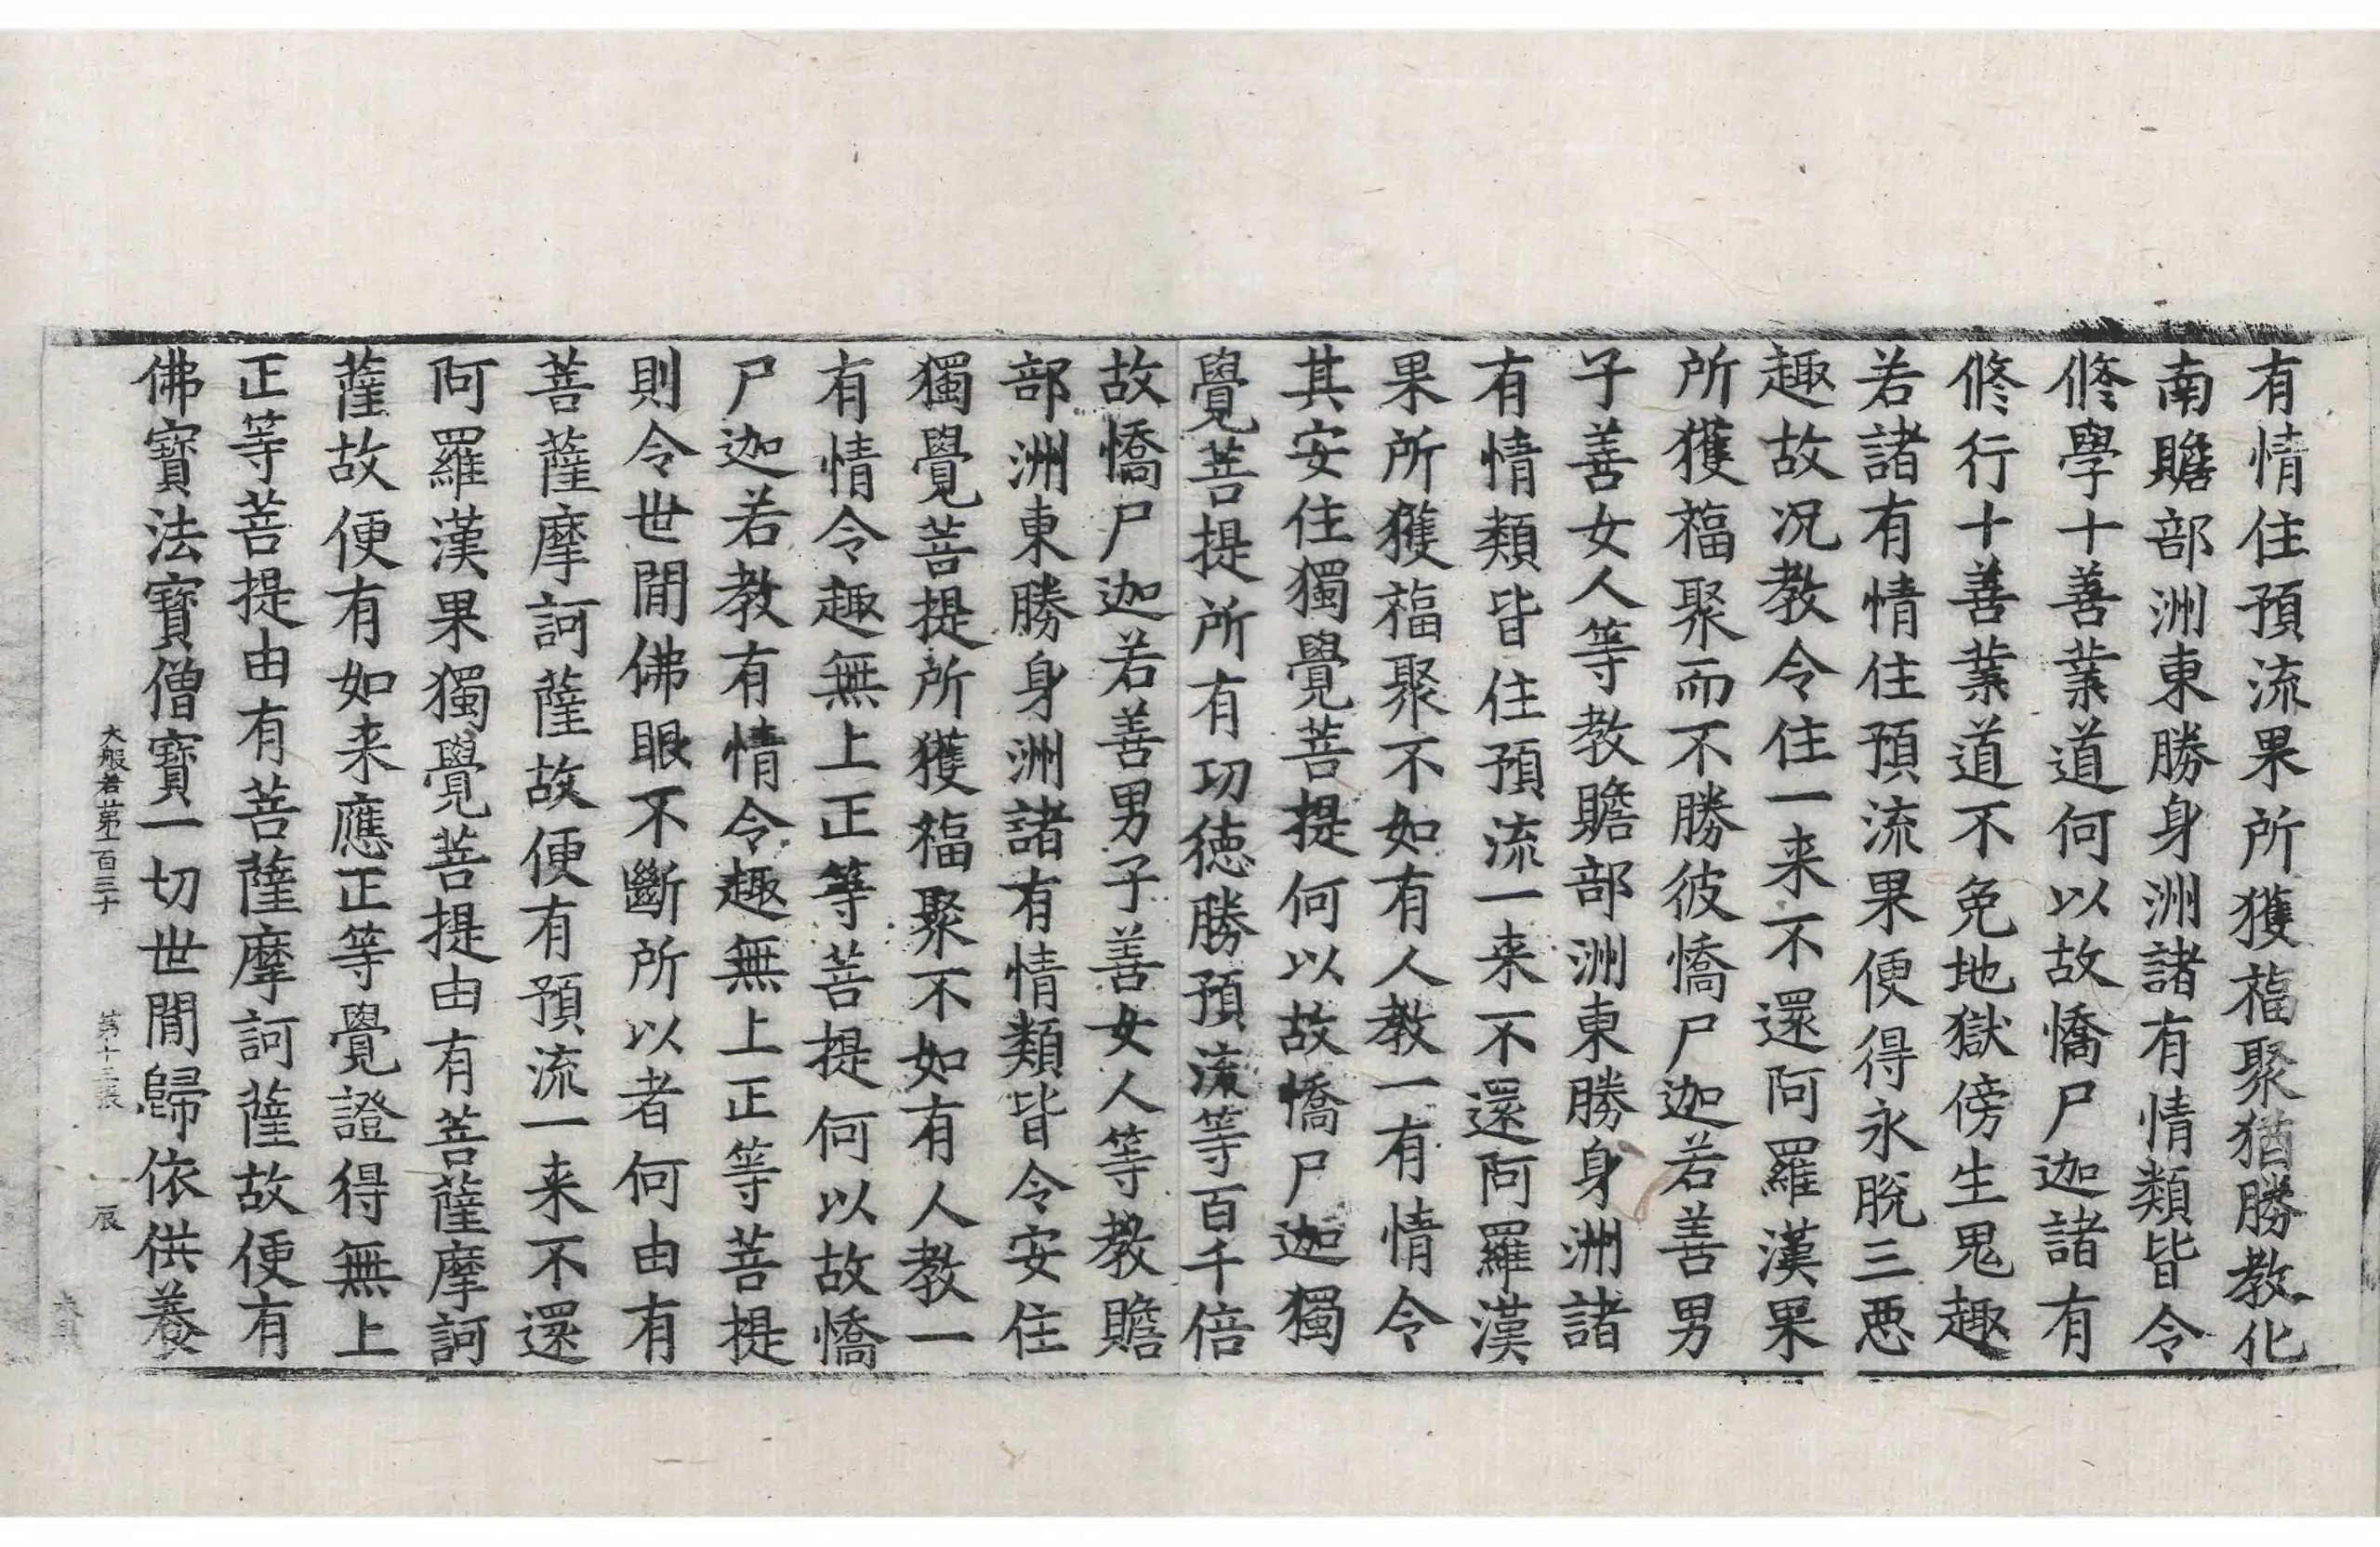 有情住預流果所獲福聚猶勝教化
南贍部洲東勝身洲諸有情類皆令
修學十善業道何以故憍尸迦諸有
修行十善業道不免地獄傍生鬼趣
若諸有情住預流果便得永脫三惡
趣故况教令住一来不還阿羅漢果
所獲福聚而不勝彼憍尸迦若善男
子善女人等教贍部洲東勝身洲諸
有情類皆住預流一来不還阿羅漢
果所獲福聚不如有人教一有情令
其安住獨覺菩提何以故憍尸迦獨
覺菩提所有功德勝預流等百千倍
故憍尸迦若善男子善女人等教贍
部洲東勝身洲諸有情類皆令安住
獨覺菩提所獲福聚不如有人教一
有情令趣無上正等菩提何以故憍
尸迦若教有情令趣無上正等菩提
則令世間佛眼不斷所以者何由有
菩薩摩訶薩故便有預流一来不還
阿羅漢果獨覺菩提由有菩薩摩訶
薩故便有如来應正等覺證得無上
正等菩提由有菩薩摩訶薩故便有
佛寶法寶僧寶一切世間歸依供養
大般若第一百三十 第十三張 辰